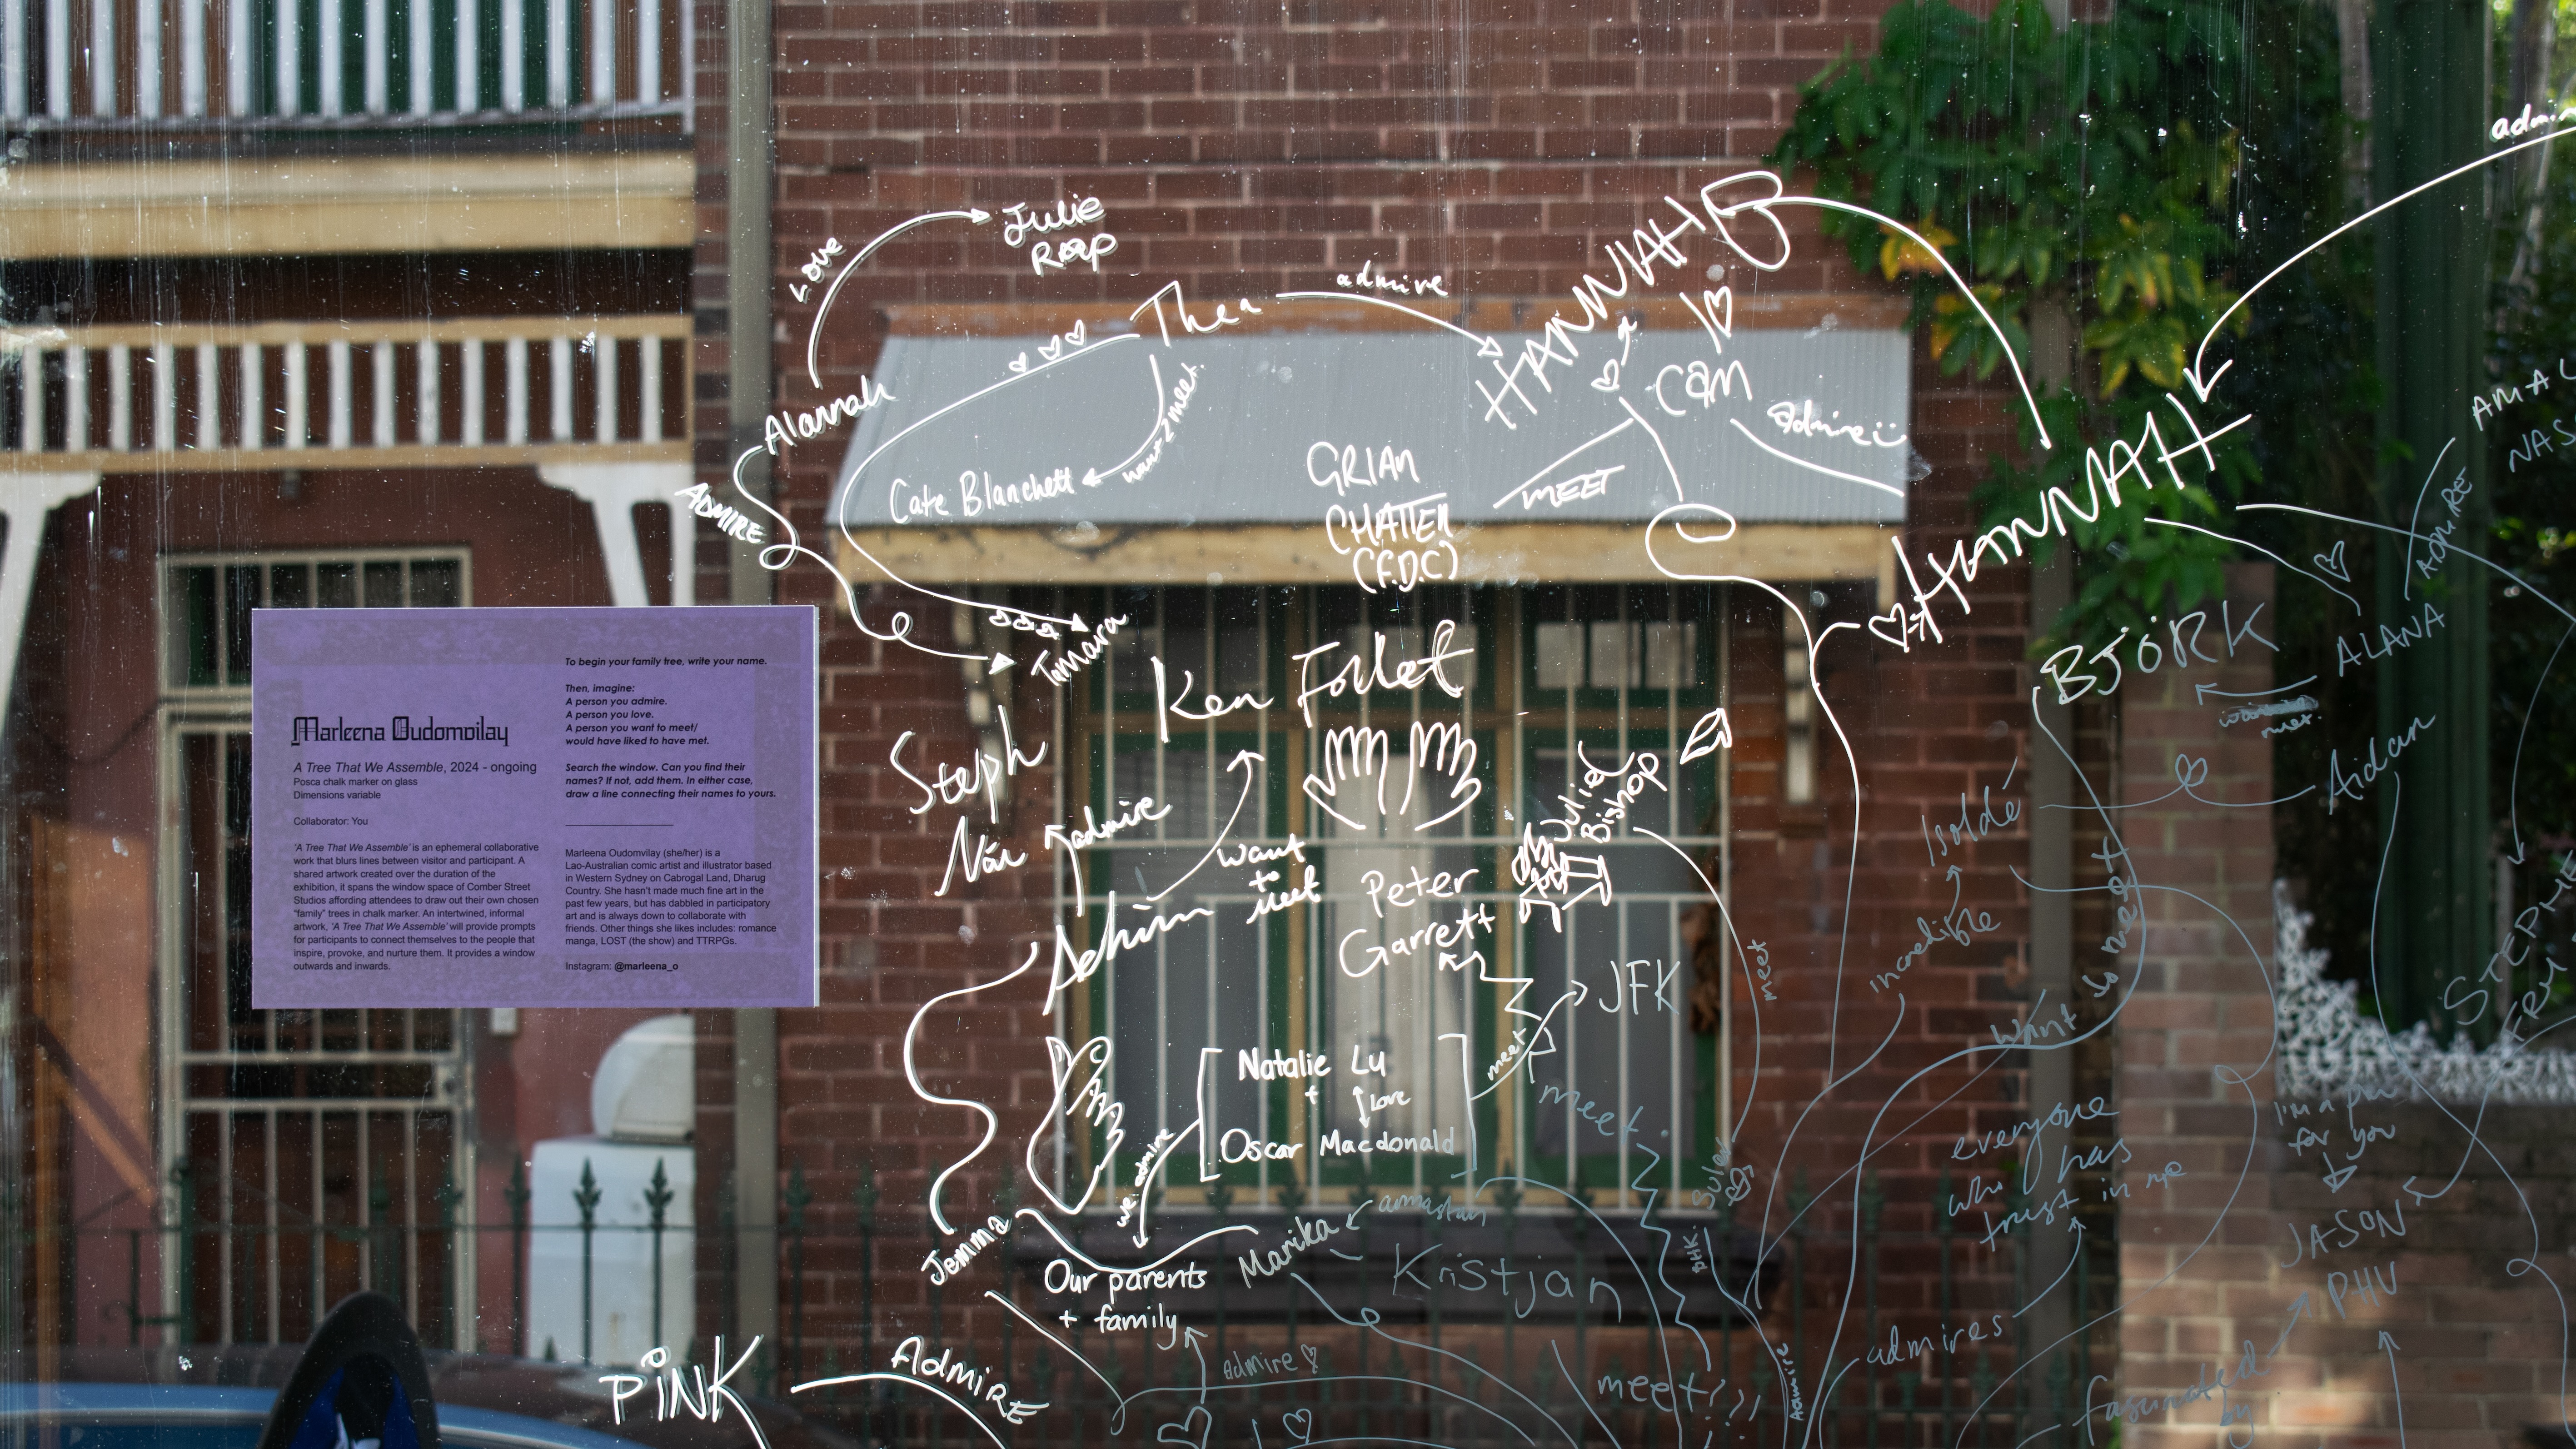 Marleena Oudomvilay
A Tree That We Assemble, 2024 - ongoing
Posca chalk marker on glass
Dimensions variable
Collaborator: You
'A Tree That We Assemble' is an ephemeral collaborative
work that blurs lines between visitor and participant. A
shared artwork created over the duration of the
exhibition, it spans the window space of Comber Street
Studios affording attendees to draw out their own chosen
"family" trees in chalk marker. An intertwined, informal
artwork, 'A Tree That We Assemble' will provide prompts
for participants to connect themselves to the people that
inspire, provoke, and nurture them. It provides a window
outwards and inwards.
To begin your family tree, write your name.
Then, imagine:
A person you admire.
A person you love.
A person you want to meet/
would have liked to have met.
Search the window. Can you find their
names? If not, add them. In either case,
draw a line connecting their names to yours.
Marleena Oudomvilay (she/her) is a
Lao-Australian comic artist and illustrator based
in Western Sydney on Cabrogal Land, Dharug
Country. She hasn't made much fine art in the
past few years, but has dabbled in participatory
art and is always down to collaborate with
friends. Other things she likes includes: romance
manga, LOST (the show) and TTRPGs.
Instagram: @marleena_o
Love
Julie
Rrap
Thea
admire
HANNAH B
Alannah
ADMIRE
want 2 meet.
Cate Blanchett
Tamara
CAM
Admire
MEET
GRIAN
CHATTEN
(F.D.C)
HANNAH
ADMIRE
ALANA
BJÖRK
meet.
Aidan
Isoldé
incredible
want to meet
Ken Follet
Steph
admire
Achim
want
to
meet
Julie
Bishop
meet
Peter
Garrett
JFK
meet
Natalie Lu
+
Love
Oscar Macdonald
we admire
meet.
Jemma
Our parents
+ family
Marika
armastan
Kristjan
everyone
who has
trust in me
admires
for you
JASON
PHU
fascinated
by
PiNK
ADMiRE
Admire
meet!?!
Admire